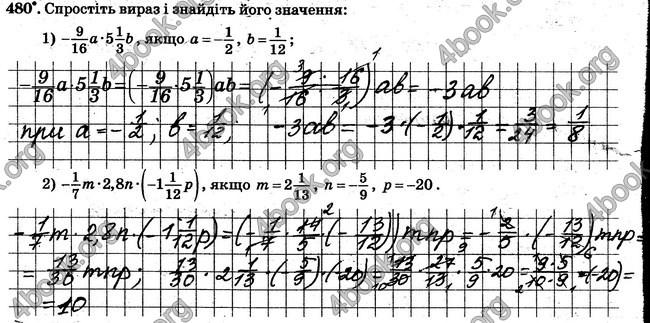 480°. Спростіть вираз і знайдіть його значення:
1) -9/16 a·5 1/3 b, якщо a = -1/2, b = 1/12;
-9/16 a·5 1/3 b = (-9/16 · 5 1/3) ab = (-9/16 · 16/3) ab = -3ab
при a = -1/2; b = 1/12, -3ab = -3·(-1/2)·1/12 = 3/24 = 1/8
2) -1/7 m·2,8n·(-1 1/12 p), якщо m = 2 1/13, n = -5/9, p = -20.
-1/7 m · 2,8n · (-1 1/12 p) = (-1/7 · 14/5 · (-13/12)) mnp = -2/5 · (-13/12) mnp =
= 13/30 mnp; 13/30 · 2 1/13 · (-5/9) · (-20) = 13/30 · 27/13 · 5/9 · 20 = 9·5/10·9 · (-20) =
= 10